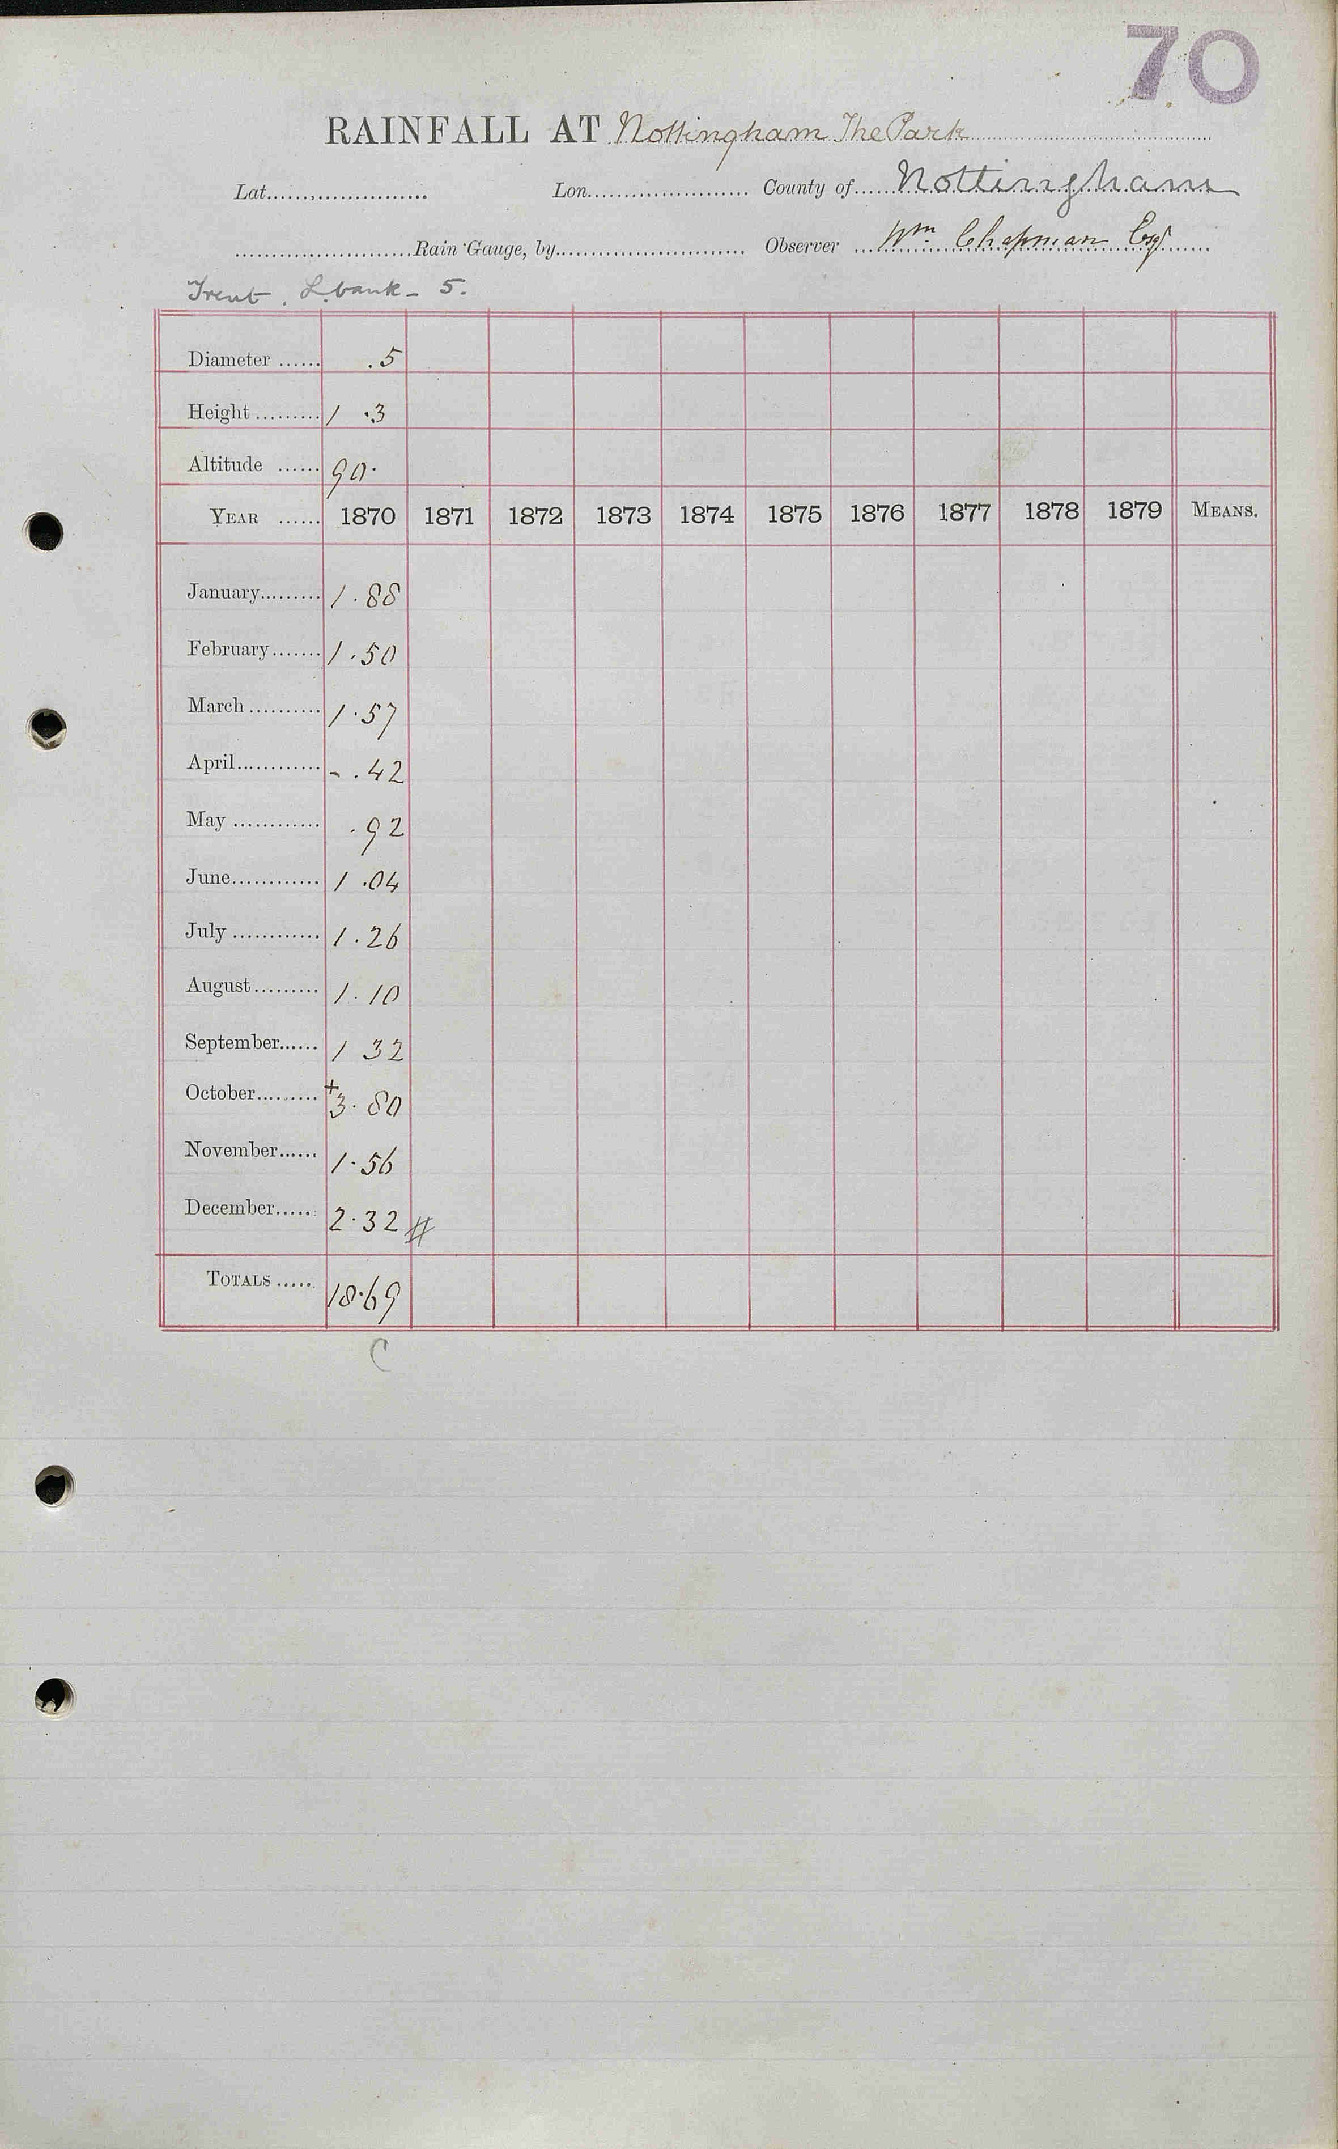 70
RAINFALL AT Nottingham The Park
Lat........................ Lon........................ County of...... Nottingham
........................Rain Gauge, by........................ Observer ... Wm Chapman Esq
Trent. L. bank - 5.
Diameter ...... .5
Height ......... 1 .3
Altitude ...... 90.
YEAR ...... 1870 1871 1872 1873 1874 1875 1876 1877 1878 1879 MEANS.
January......... 1.88
February....... 1.50
March .......... 1.57
April............ - .42
May ............ .92
June............ 1 .04
July ............ 1.26
August......... 1.10
September...... 1 32
October......... +3.80
November...... 1.56
December...... 2.32 #
TOTALS ..... 18.69
C